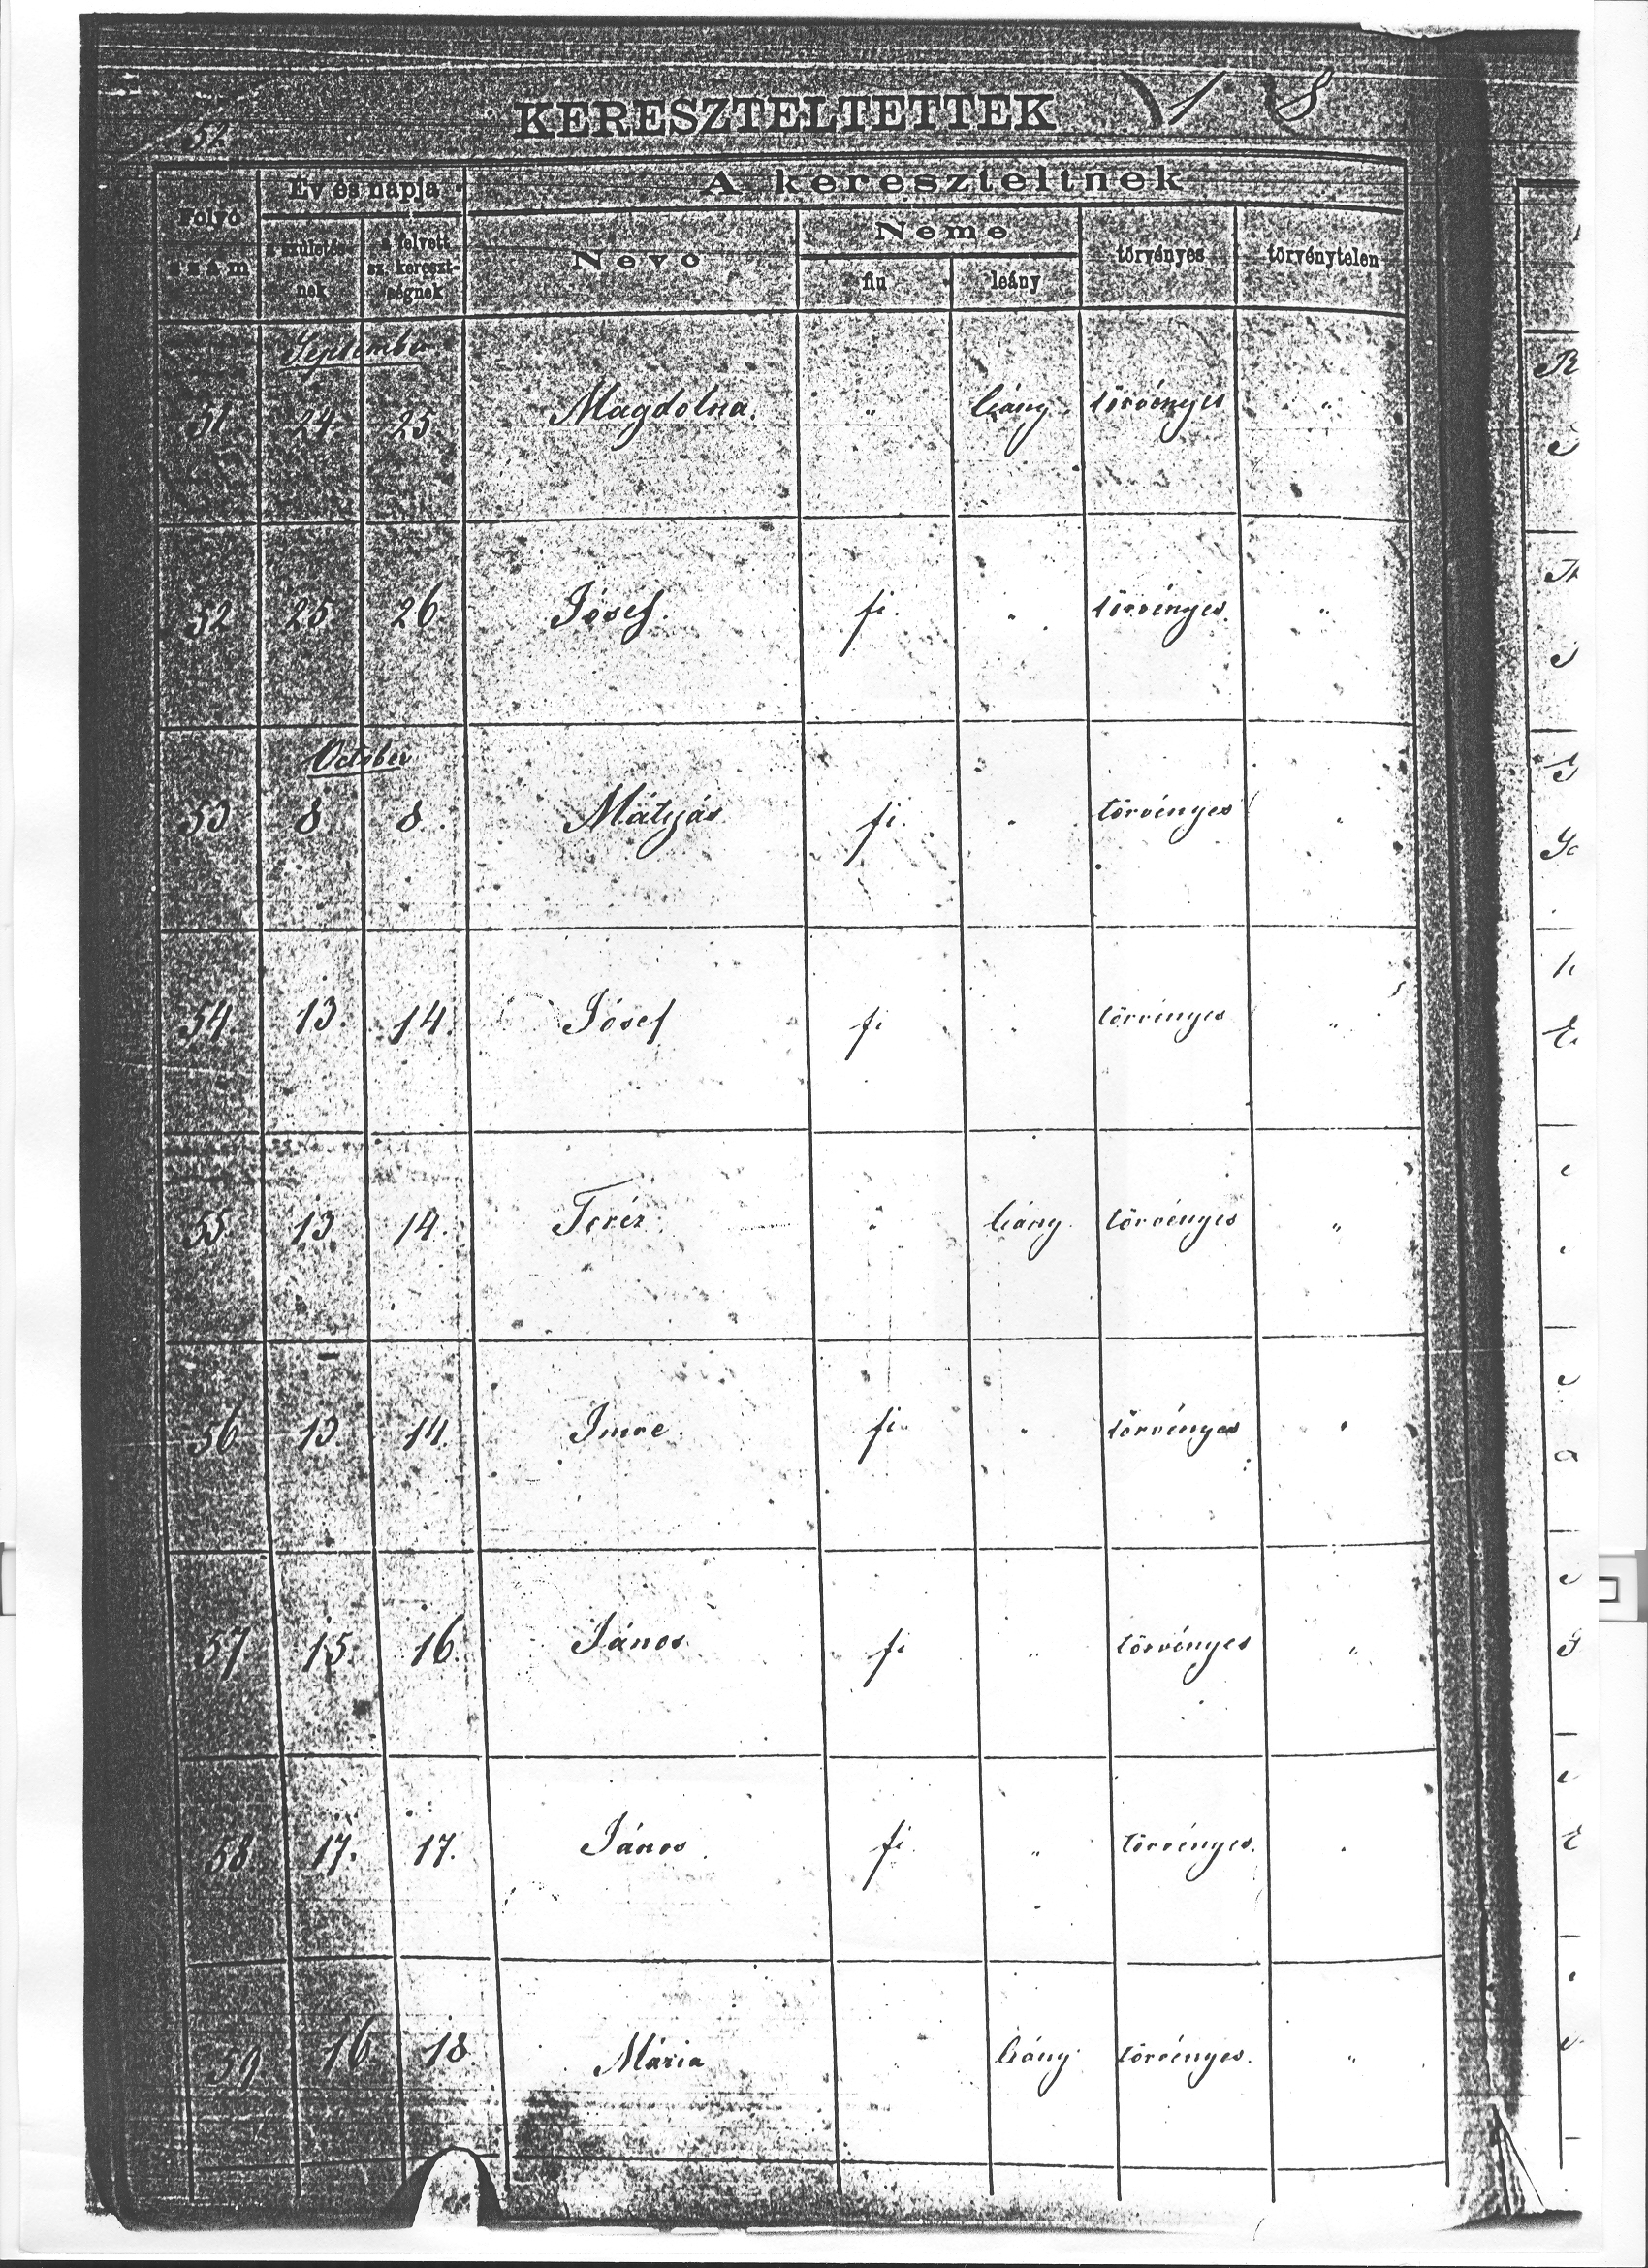 52.
KERESZTELTETTEK 18
Folyó szám
Év és napja
a születés-nek
a felvett sz. kereszt-ségnek
A kereszteltnek
Neve
Neme
fiu
leány
törvényes
törvénytelen
September
51 24. 25. Magdolna. „ leány. törvényes „
52 25 26. Jósef. fi. „ törvényes. „
October
53 8. 8. Mátyás fi. „ törvényes „
54 13. 14. Jósef fi „ törvényes „
55 13. 14. Teréz. „ leány. törvényes „
56 13. 14. Imre. fi. „ törvényes „
57 15. 16. János. fi „ törvényes „
58 17. 17. János. fi. „ törvényes. „
59. 16 18. Mária leány. törvényes. „